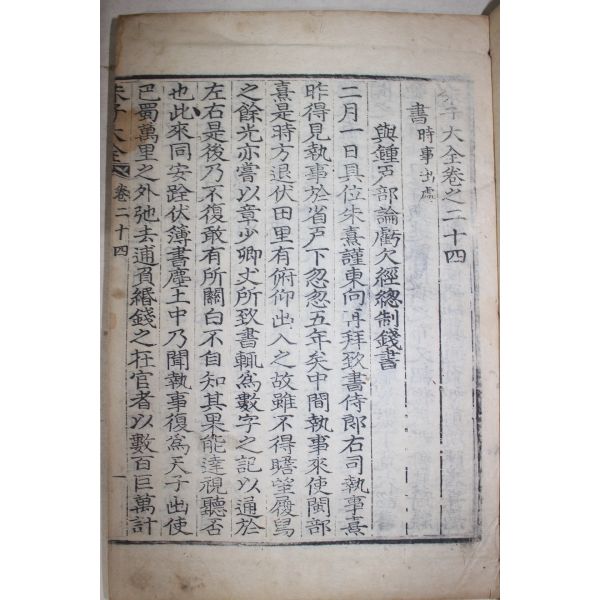 朱子大全卷之二十四
書 時事出處
與鍾戸部論虧欠經總制錢書
二月一日具位朱熹謹東向再拜致書侍郎右司執事熹
昨得見執事於省戸下忽忽五年矣中間執事來使閩部
熹是時方退伏田里有俯仰出入之故雖不得瞻望履舄
之餘光亦嘗以章少卿丈所致書輒爲數字之記以通於
左右是後乃不復敢有所關白不自知其果能達視聽否
也此來同安跧伏簿書塵土中乃聞執事復爲天子出使
巴蜀萬里之外弛去逋負緡錢之在官者以數百巨萬計
朱子大全 卷二十四